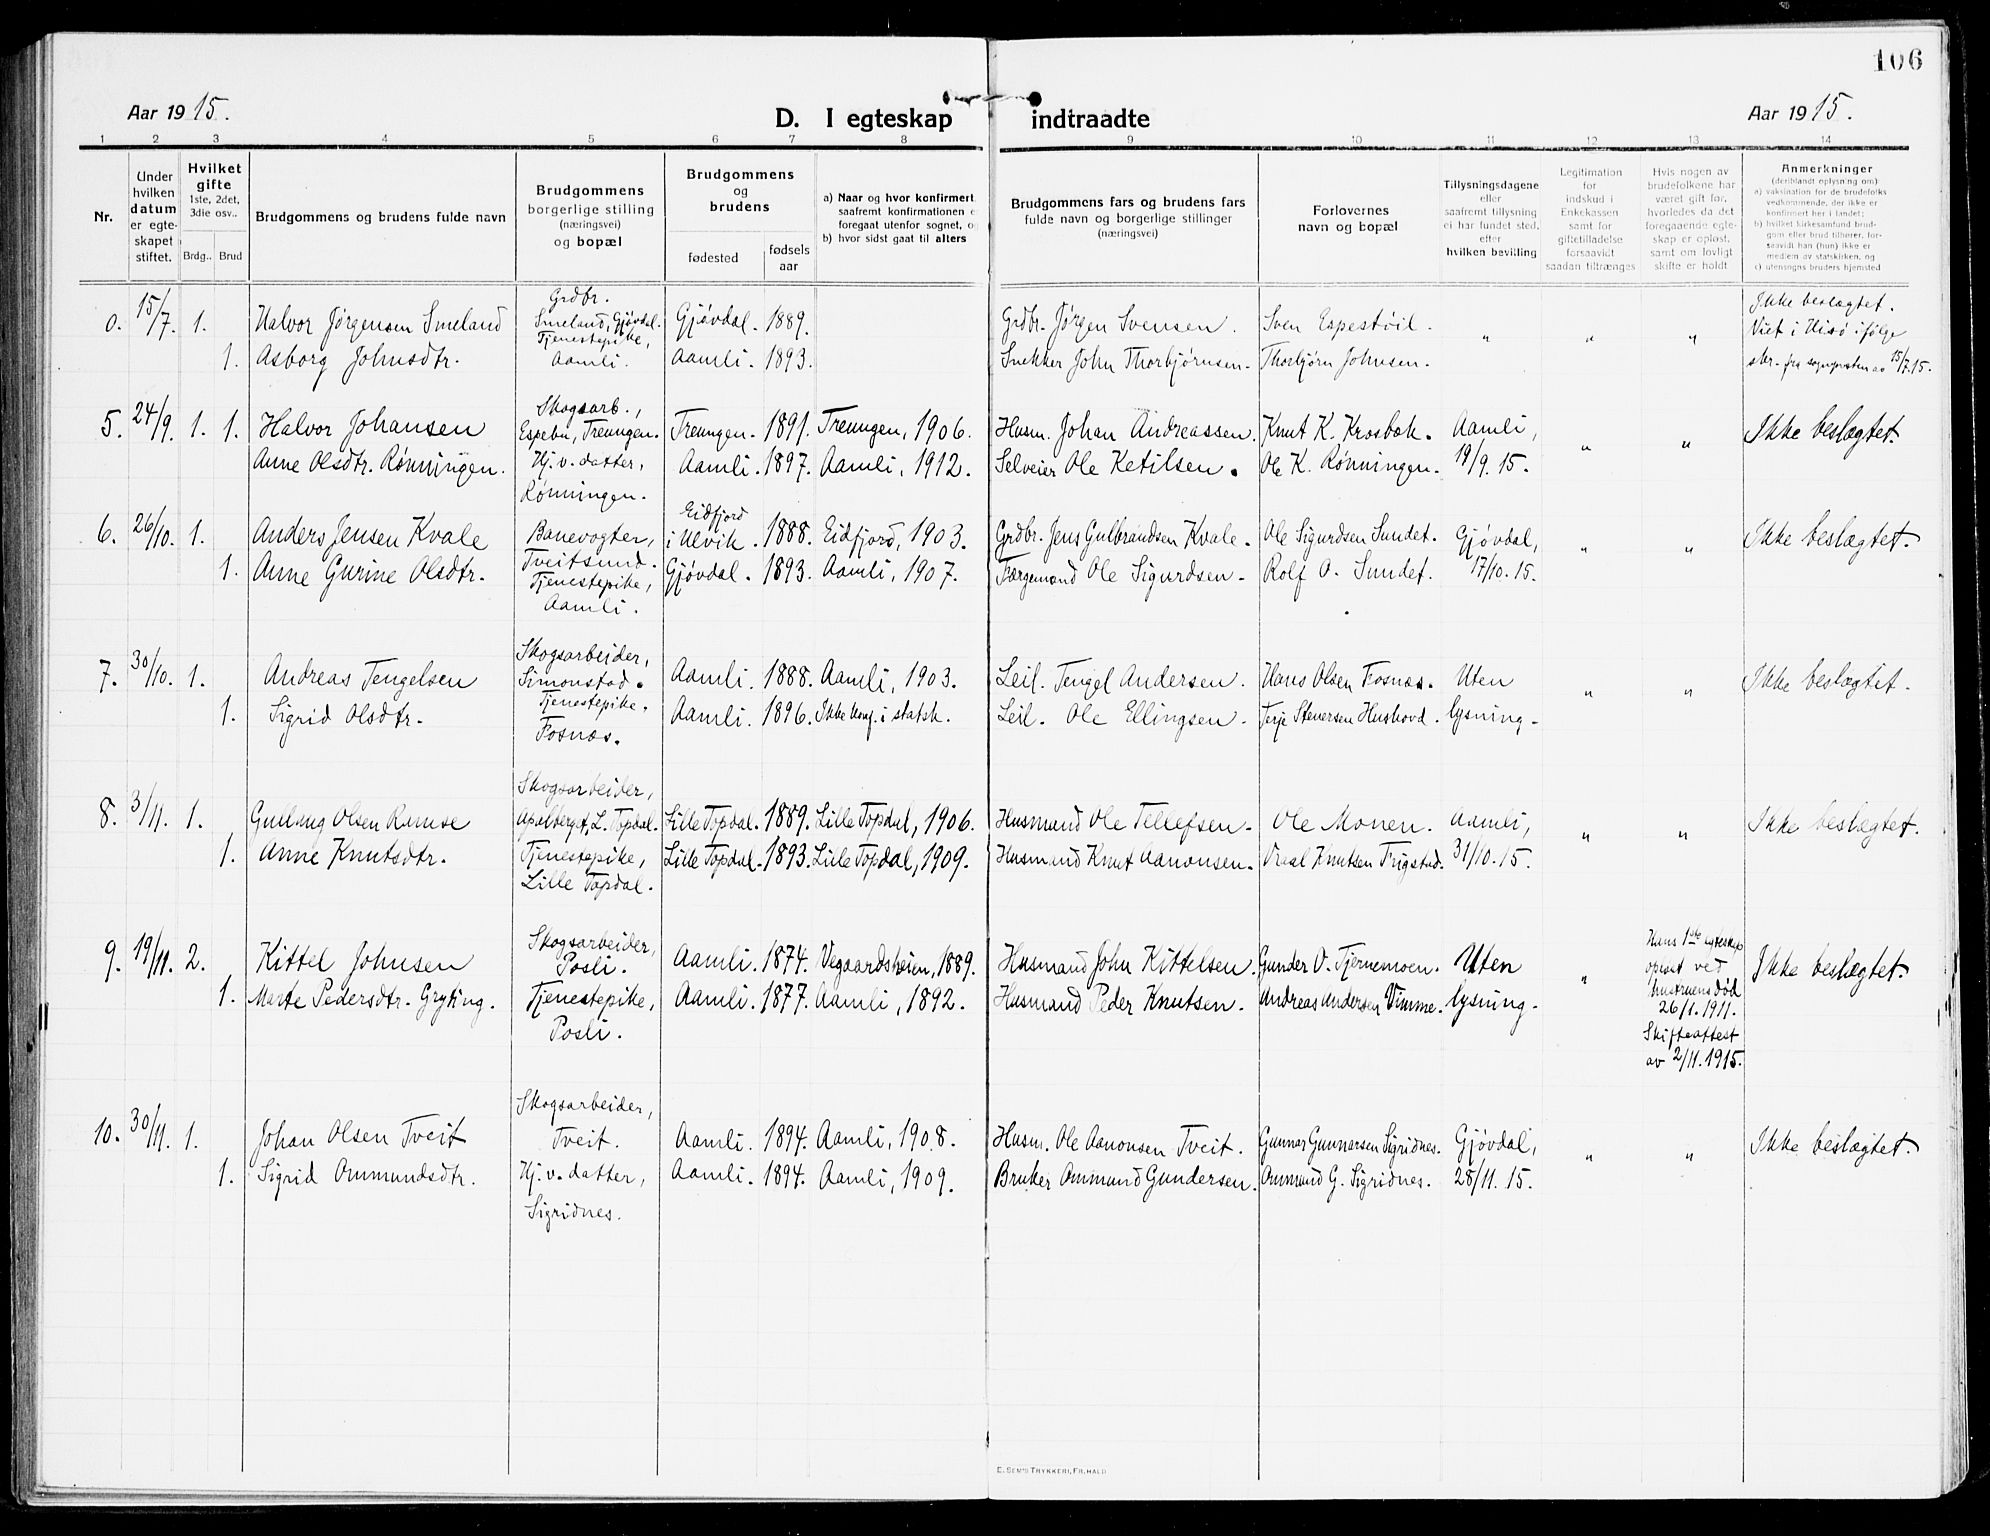 106
Aar 1915.
D. I egteskap indtraadte
Aar 1915.
1 2 3 4 5 6 7 8 9 10 11 12 13 14
Nr.
Under hvilken datum er egteskapet stiftet.
Hvilket gifte 1ste, 2det, 3die osv..
Brdg.. Brud
Brudgommens og brudens fulde navn
Brudgommens borgerlige stilling (næringsvei) og bopæl
Brudgommens og brudens
fødested
fødsels aar
a) Naar og hvor konfirmert,
saafremt konfirmationen e
foregaat utenfor sognet, og
b) hvor sidst gaat til alters
Brudgommens fars og brudens fars
fulde navn og borgerlige stillinger
(næringsvei)
Forlovernes
navn og bopæl
Tillysningsdagene
eller
saafremt tillysning
ei har fundet sted,
efter
hvilken bevilling
Legitimation
for
indskud i
Enkekassen
samt for
giftetilladelse
forsaavidt
saadan tiltrænges
Hvis nogen av
brudefolkene har
været gift før,
hvorledes da det
foregaaende egte-
skap er opløst,
samt om lovligt
skifte er holdt
Anmerkninger
(deriblandt oplysning om):
a) vaksination for de brudefolks
vedkommende, der ikke er
konfirmert her i landet;
b) hvilket kirkesamfund brud-
gom eller brud tilhører, for-
saavidt han (hun) ikke er
medlem av statskirken, og
c) utensogns bruders hjemsted
0. 15/7. 1. Halvor Jørgensen Smeland Grdbr. Smeland, Gjøvdal. Gjøvdal. 1889. Grdbr. Jørgen Svensen. Sven Espestøil. " " " Ikke beslægtet. Viet i Hisø ifølge
1. Asborg Johnsdtr. Tjenestepike, Aamli. Aamli. 1893. Snekker John Thorbjørnsen. Thorbjørn Johnsen. skr. fra sogneprsten av 15/7.15.
5. 24/9. 1. 1. Halvor Johansen Skogsarb., Espebu, Treungen. Treungen. 1891. Treungen, 1906. Husm. Johan Andreassen. Knut K. Krosbæk. Aamli, " " Ikke beslægtet.
Anne Olsdtr. Rønningen. Hj. v. datter, Rønningen. Aamli. 1897. Aamli, 1912. Selveier Ole Ketilsen. Ole K. Rønningen. 19/9. 15.
6. 26/10. 1. Anders Jensen Kvale Banevogter, Tveitsund. Eidfjord i Ulvik. 1888. Eidfjord, 1903. Grdbr. Jens Gulbrandsen Kvale. Ole Sigurdsen Sundet. Gjøvdal, " " Ikke beslægtet.
1. Anne Gurine Olsdtr. Tjenestepike, Aamli. Gjøvdal. 1893. Aamli, 1907. Færgemand Ole Sigurdsen. Rolf O. Sundet. 17/10. 15.
7. 30/10. 1. Andreas Tengelsen Skogsarbeider, Simonstad. Aamli. 1888. Aamli, 1903. Leil. Tengel Andersen. Hans Olsen Fosnæs. Uten " " Ikke beslægtet.
1. Sigrid Olsdtr. Tjenestepike, Fosnæs. Aamli. 1896. Ikke konf. i statsk. Leil. Ole Ellingsen. Terje Stenersen Hushovd. lysning.
8. 3/11. 1. Gullaug Olsen Ramse Skogsarbeider, Apalberget, L. Topdal. Lille Topdal. 1889. Lille Topdal, 1906. Husmand Ole Tellefsen. Ole Monen. Aamli, " " Ikke beslægtet.
1. Anne Knutsdtr. Tjenestepike, Lille Topdal. Lille Topdal. 1893. Lille Topdal, 1909. Husmand Knut Aanonsen. Vraal Knutsen Frigstad. 31/10. 15.
9. 19/11. 2. Kittel Johnsen Skogsarbeider, Posli. Aamli. 1874. Vegaardsheien, 1889. Husmand John Kittelsen. Gunder O. Tjernemoen. Uten " Hans 1ste egteskap opløst ved hustruens død 26/11. 1911. Skifteattest av 2/11. 1915. Ikke beslægtet.
1. Marte Pedersdtr. Gryting. Tjenestepike, Posli. Aamli. 1877. Aamli, 1892. Husmand Peder Knutsen. Andreas Andersen Vimme. lysning.
10. 30/11. 1. Johan Olsen Tveit Skogsarbeider, Tveit. Aamli. 1894. Aamli, 1908. Husm. Ole Aanonsen Tveit. Gunnar Gunnarsen Sigridnes. Gjøvdal, " " Ikke beslægtet.
1. Sigrid Ommundsdtr. Hj. v. datter, Sigridnes. Aamli. 1894. Aamli, 1909. Bruker Ommund Gundersen. Ommund G. Sigridnes. 28/11. 15.
E. SEM'S TRYKKERI, FR.HALD